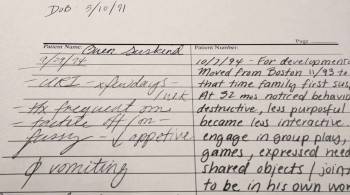 DOB: 5/10/91
Page
Patient Name: Owen Suskind
Patient Number:
URI - x few days
/ wk
Hx frequent om
tactile off / on
fussy - ↓ appetite
ϕ vomiting
10/7/94 - For developmenta
Moved from Boston 11/93 to
that time family first sus
At 32 mos noticed behavio
destructive, less purposful
became less interactive.
engage in group play,
games, expressed need
shared objects / joins
to be in his own wo